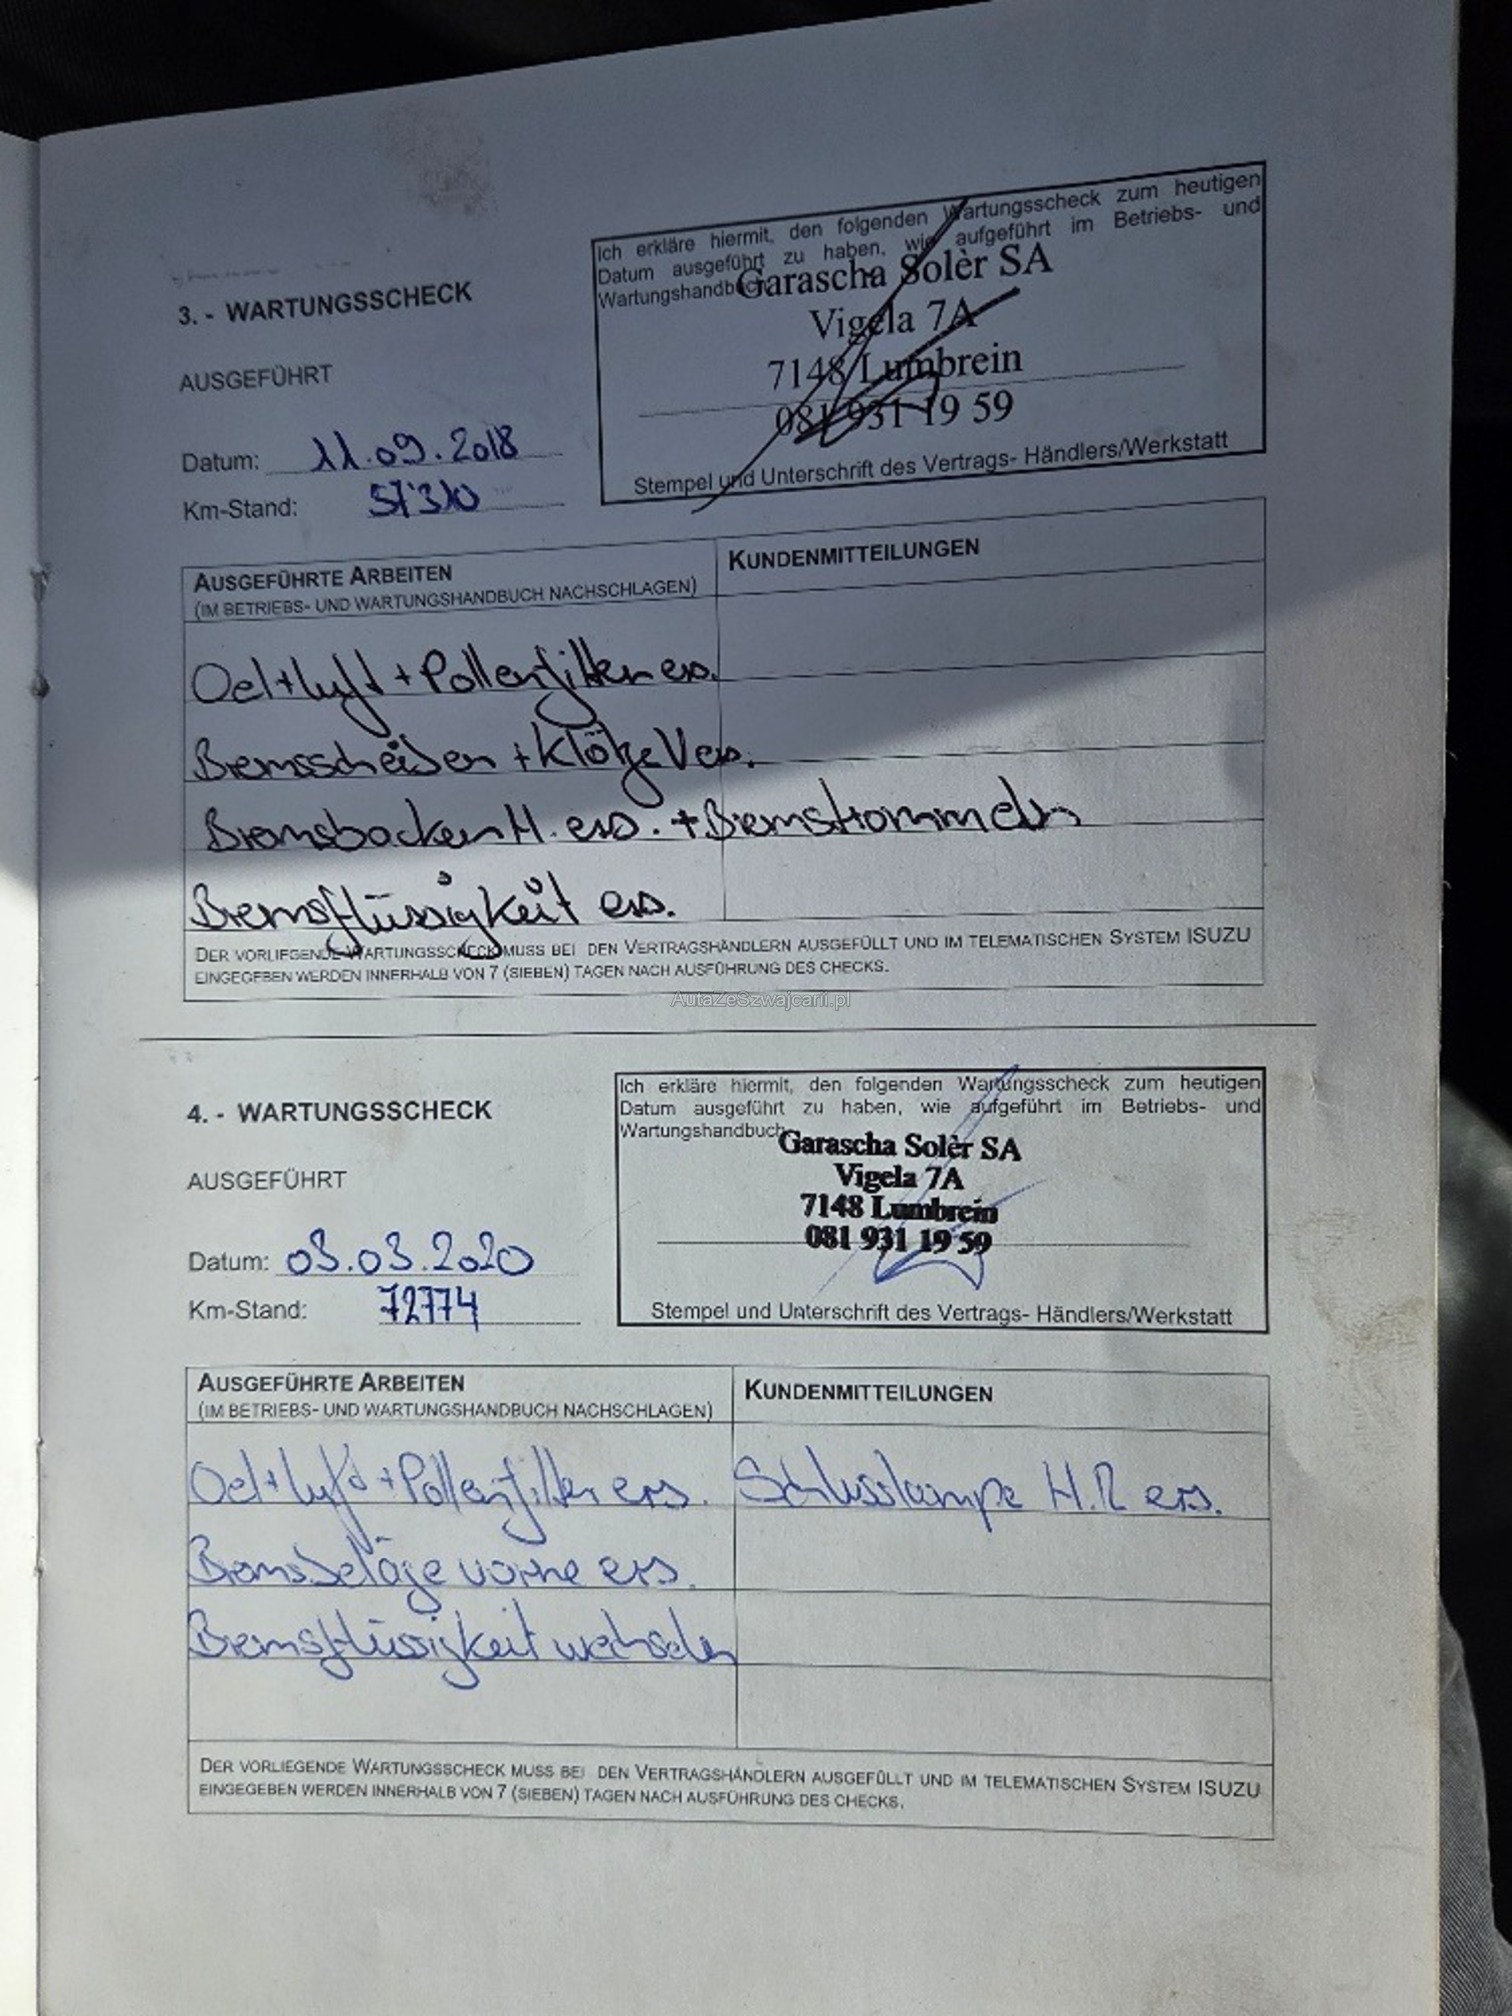 3. - WARTUNGSSCHECK
AUSGEFÜHRT
Datum: 11.09.2018
Km-Stand: 57'310
Ich erkläre hiermit, den folgenden Wartungsscheck zum heutigen
Datum ausgeführt zu haben, wie aufgeführt im Betriebs- und
Wartungshandbuch
Garascha Solèr SA
Vigela 7A
7148 Lumbrein
081 931 19 59
Stempel und Unterschrift des Vertrags- Händlers/Werkstatt
AUSGEFÜHRTE ARBEITEN
(IM BETRIEBS- UND WARTUNGSHANDBUCH NACHSCHLAGEN)
KUNDENMITTEILUNGEN
Oel+Luft+Pollenfilter ers.
Bremsscheiben + Klötze V ers.
Bremsbacken H. ers. + Bremstrommeln
Bremsflüssigkeit ers.
DER VORLIEGENDE WARTUNGSSCHECK MUSS BEI DEN VERTRAGSHÄNDLERN AUSGEFÜLLT UND IM TELEMATISCHEN SYSTEM ISUZU
EINGEGEBEN WERDEN INNERHALB VON 7 (SIEBEN) TAGEN NACH AUSFÜHRUNG DES CHECKS.
AutaZeSzwajcarii.pl
4. - WARTUNGSSCHECK
AUSGEFÜHRT
Datum: 03.03.2020
Km-Stand: 72774
Ich erkläre hiermit, den folgenden Wartungsscheck zum heutigen
Datum ausgeführt zu haben, wie aufgeführt im Betriebs- und
Wartungshandbuch
Garascha Solèr SA
Vigela 7A
7148 Lumbrein
081 931 19 59
Stempel und Unterschrift des Vertrags- Händlers/Werkstatt
AUSGEFÜHRTE ARBEITEN
(IM BETRIEBS- UND WARTUNGSHANDBUCH NACHSCHLAGEN)
KUNDENMITTEILUNGEN
Oel+Luft+Pollenfilter ers. Schlusslampe H.R ers.
Bremsbeläge vorne ers.
Bremsflüssigkeit wechseln
DER VORLIEGENDE WARTUNGSSCHECK MUSS BEI DEN VERTRAGSHÄNDLERN AUSGEFÜLLT UND IM TELEMATISCHEN SYSTEM ISUZU
EINGEGEBEN WERDEN INNERHALB VON 7 (SIEBEN) TAGEN NACH AUSFÜHRUNG DES CHECKS.